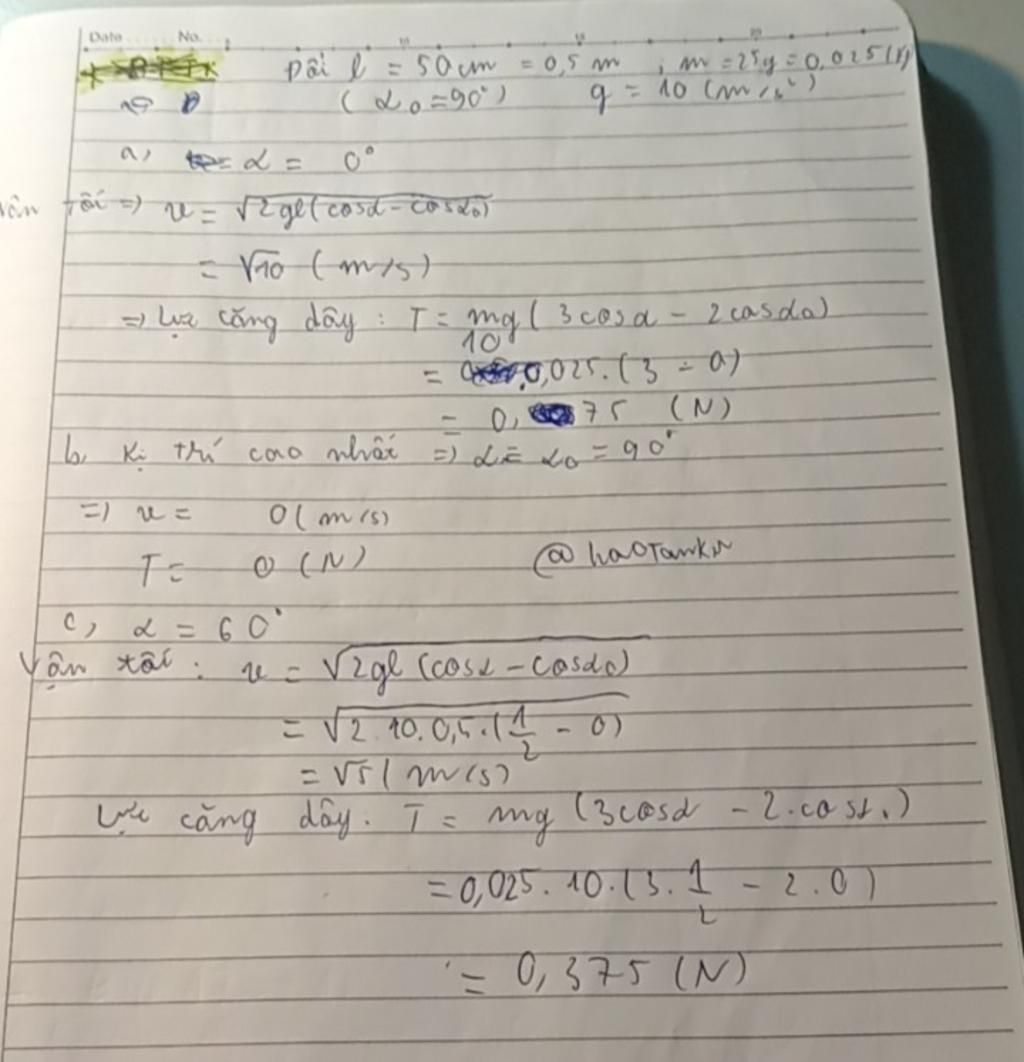 Date No.
Dổi l = 50cm = 0,5 m ; m = 25g = 0,025 (k)
(α₀ = 90°) g = 10 (m/s²)
a, α = 0°
vận tốc => v = √2gl(cosα - cosα₀)
= √10 (m/s)
=> Lực căng dây : T = mg ( 3cosα - 2cosα₀)
= 10.0,025.(3 - 0)
= 0,75 (N)
b, Vị trí cao nhất => α = α₀ = 90°
=> v = 0 (m/s)
T = 0 (N) @haoTamkN
c, α = 60°
Vận tốc : v = √2gl (cosα - cosα₀)
= √2.10.0,5.(1/2 - 0)
= √5 (m/s)
Lực căng dây : T = mg (3cosα - 2.cosα₀)
= 0,025.10.(3.1/2 - 2.0)
= 0,375 (N)